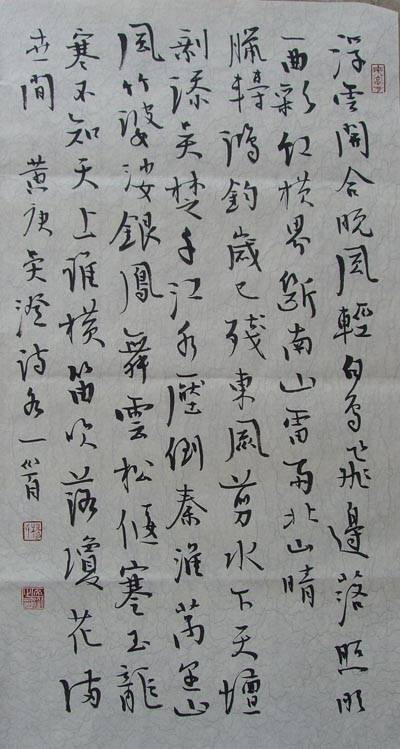 浮雲開合晚風輕白鳥飛邊落照明
一曲彩虹橫界斷南山雷雨北山晴
臘轉鴻鈞歲已殘東風剪水下天壇
剩添吳楚千江水壓倒秦淮萬里山
風竹婆娑銀鳳舞雲松偃蹇玉龍
寒不知天上誰橫笛吹落瓊花滿
世間 黃庚吳澄詩各一首